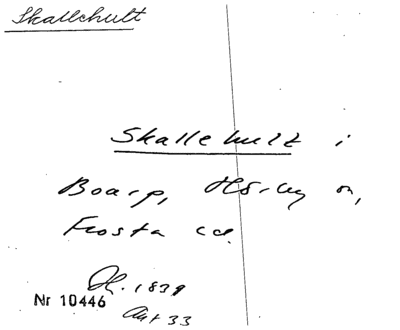 Skallehult
Skallehult i
Boarp, Hörby sn,
Frosta hd.
1839
Nr 10446
Akt 33